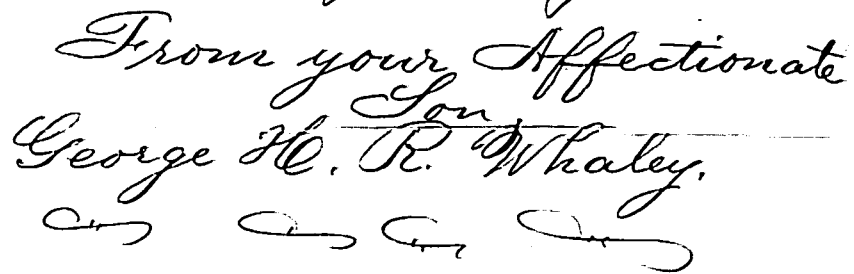 From your Affectionate
Son,
George H. R. Whaley.